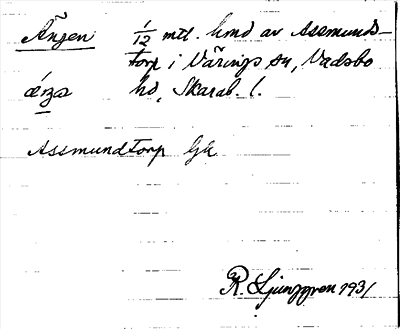 Ängen 1/12 mtl. hmd av Assmunds-
torp i Värings sn, Vadsbo
hd, Skarab. l.
Assmundtorp Gk
R. Ljunggren 1931